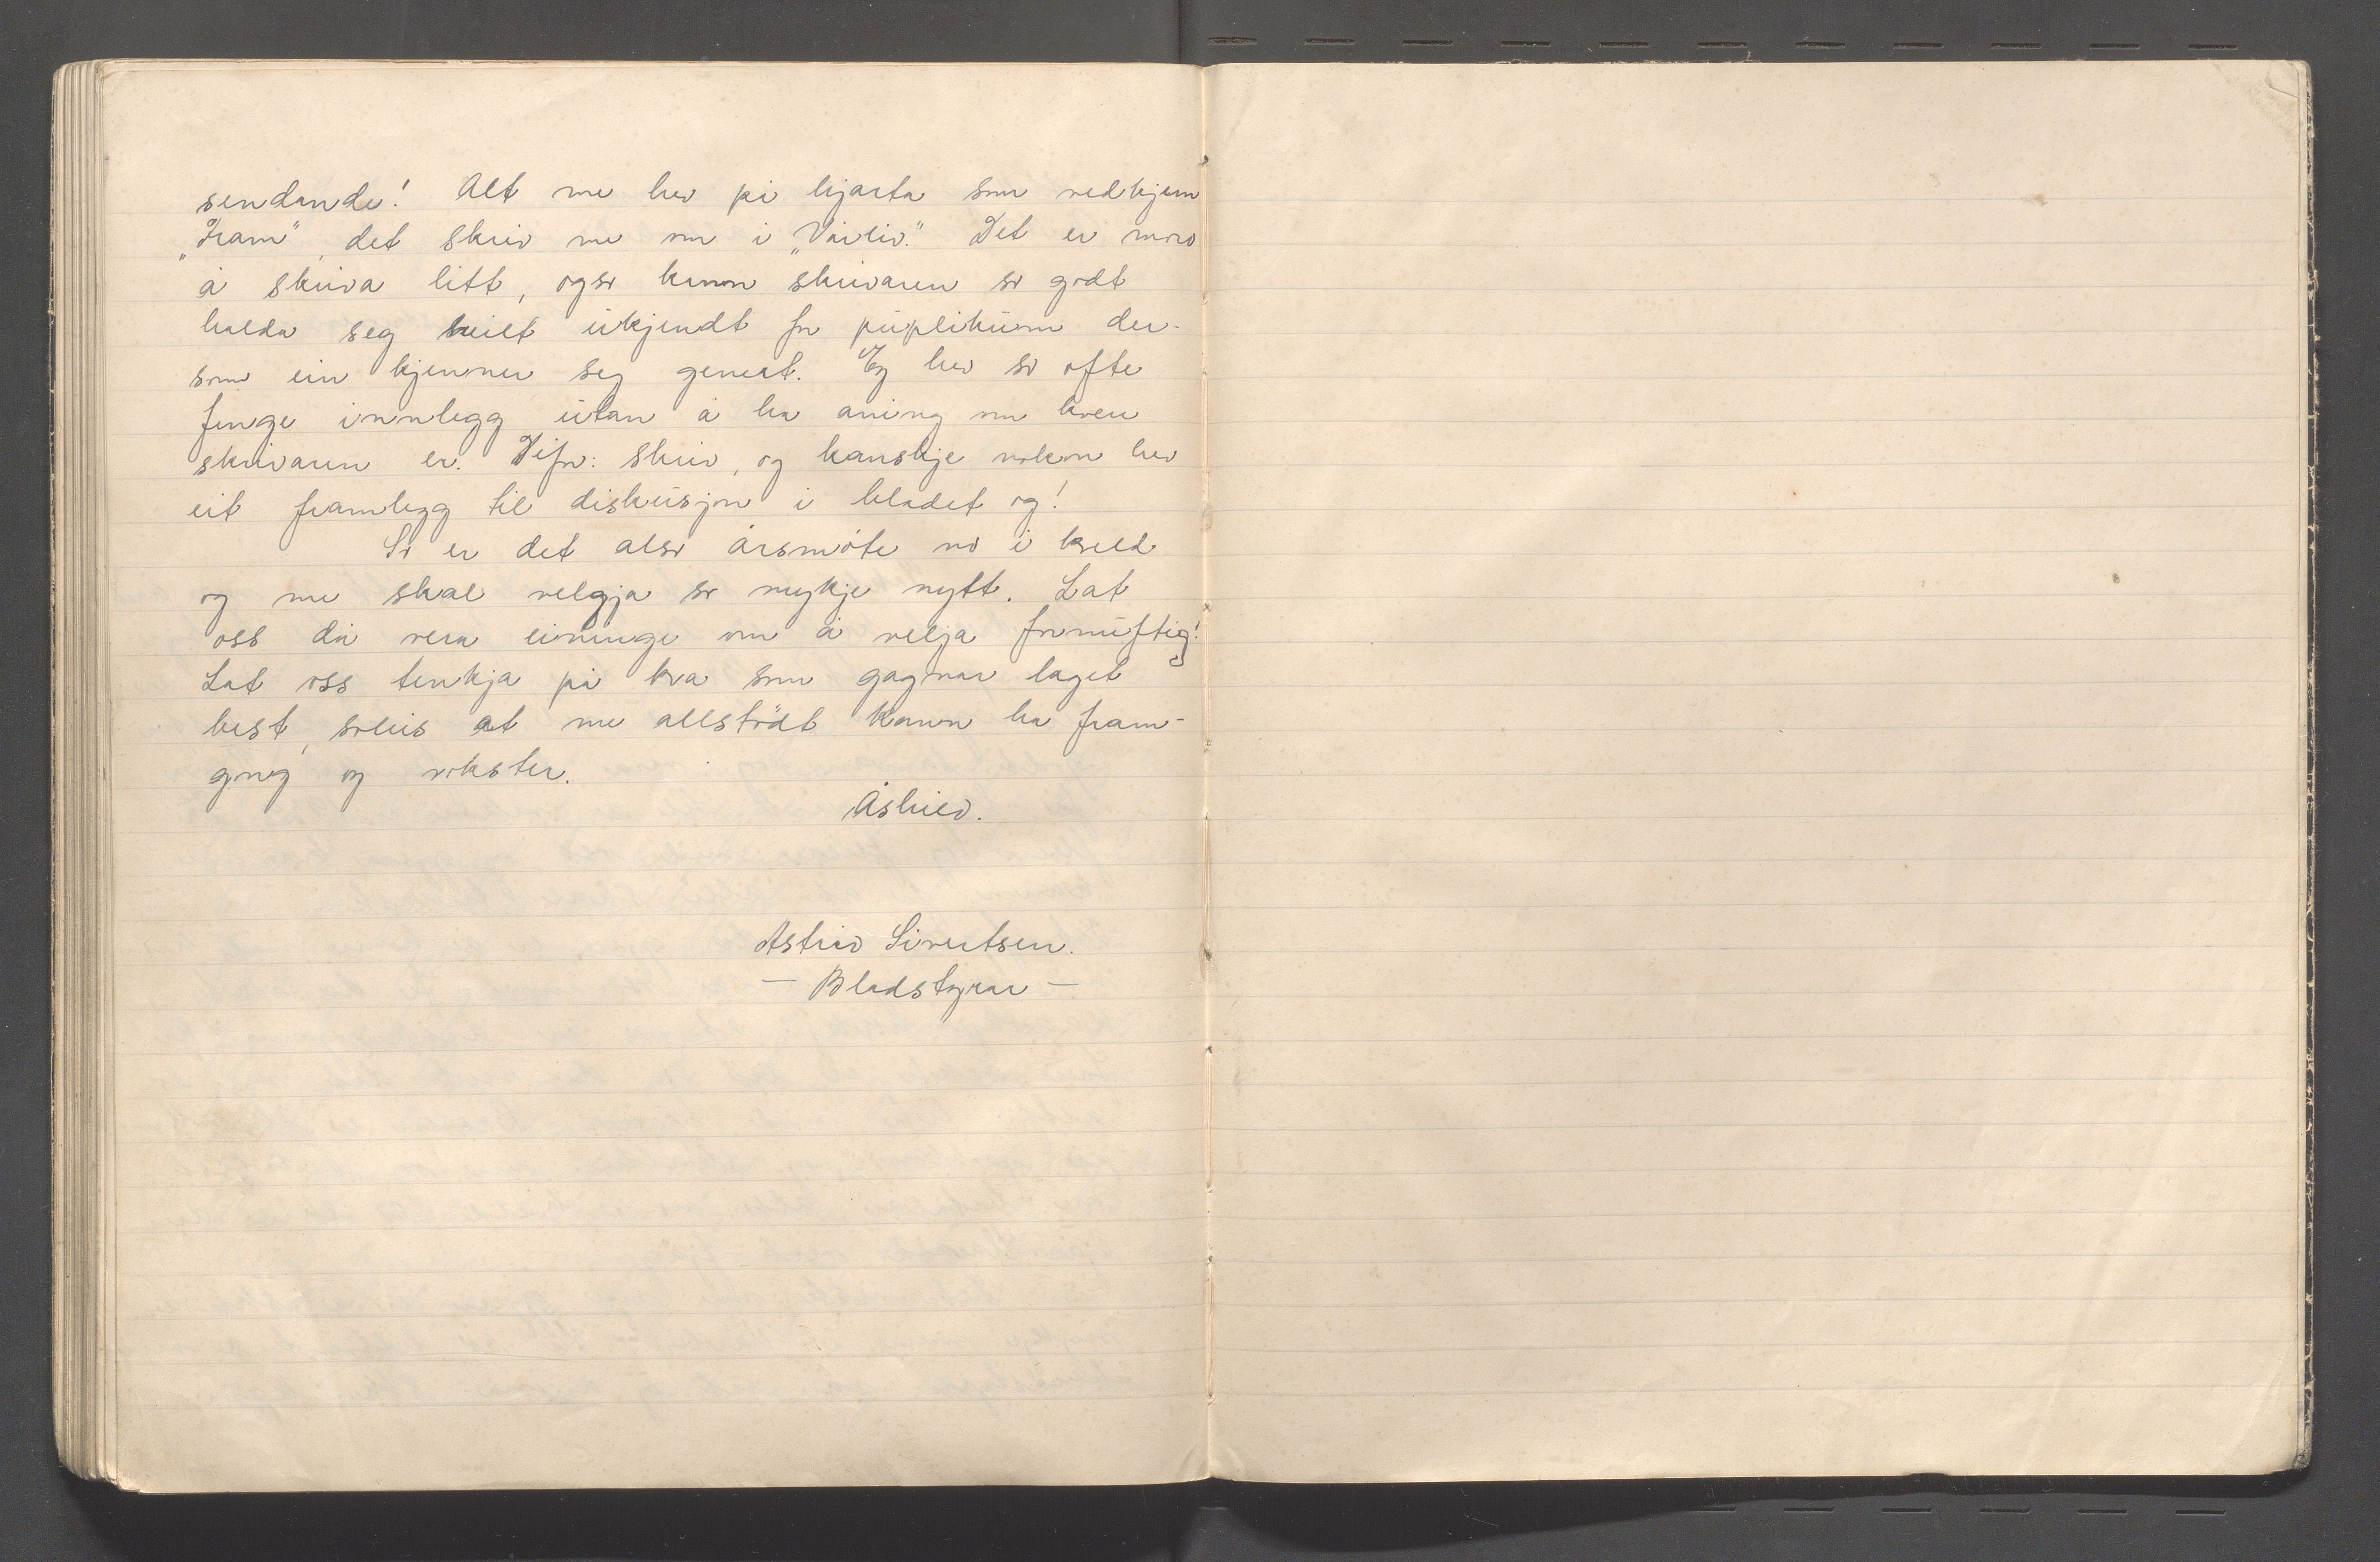 sendande! Alt me hev på hjarta som vedkjem
„Fram", det skriv me om i „Vårliv." Det er moro
å skriva litt, ogso kann skrivaren so godt
halda seg heilt ukjendt for puplikum der-
som ein kjenner seg genert. Eg hev so ofte
fenge innlegg utan å ha aning om kven
skrivaren er. Difor: skriv, og kanskje nokon hev
eit framlegg til diskusjon i bladet og!
So er det also årsmöte no i kveld
og me skal velgja so mykje nytt. Lat
oss då vera einige om å velja fornuftig!
Lat oss tenkja på kva som gagnar laget
best, soleis at me allstödt kann ha fram-
gong og vokster.
Åshild.
Astrid Sivertsen.
— Bladstyrar —